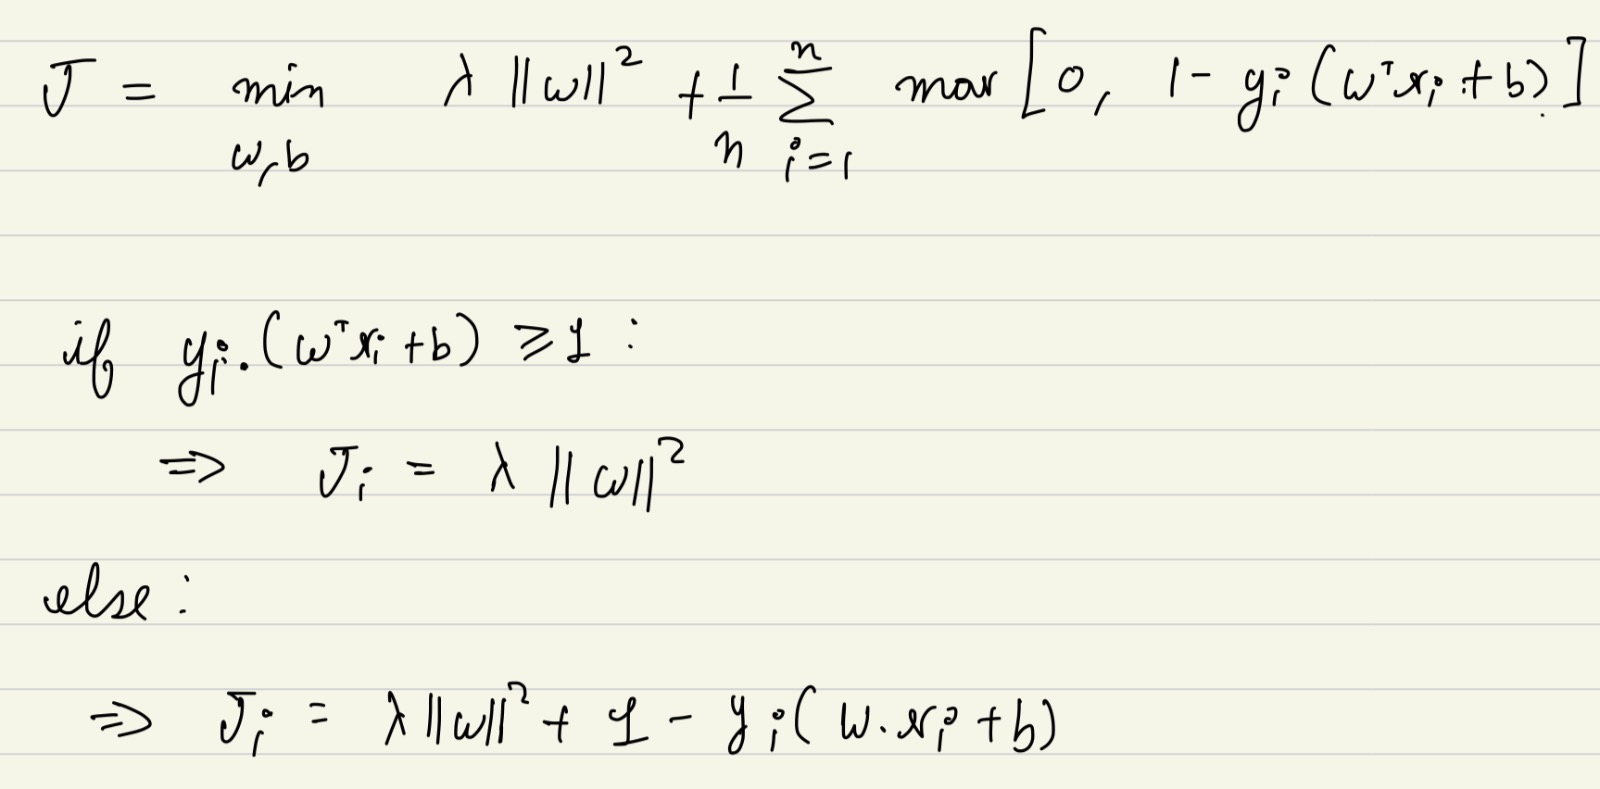 J = min_{w,b} λ ||w||² + 1/n Σ_{i=1}^{n} max [0, 1 - y_i (wᵀx_i + b)]
if y_i.(wᵀx_i + b) ⩾ 1 :
=> J_i = λ ||w||²
else :
=> J_i = λ ||w||² + 1 - y_i (w.x_i + b)